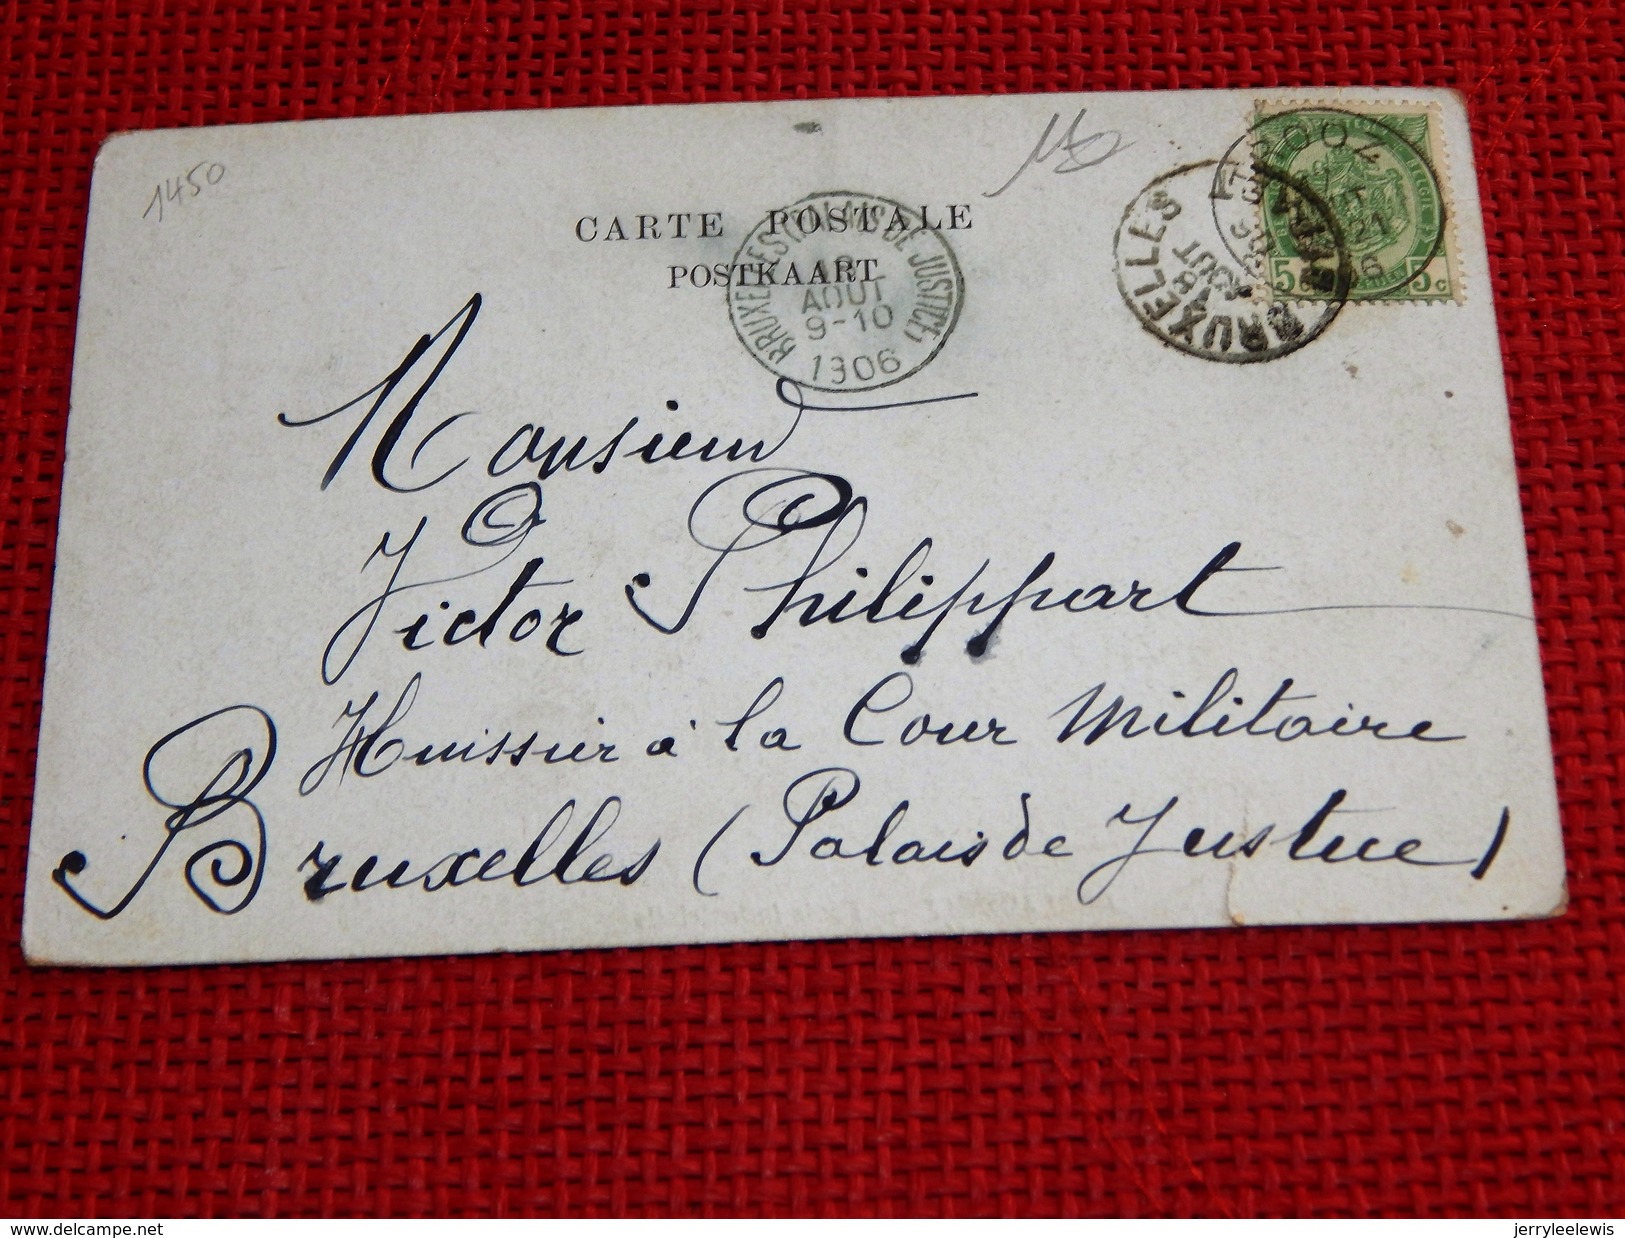 1450
CARTE POSTALE
POSTKAART
BRUXELLES (PALAIS DE JUSTICE)
AOUT
9-10
1906
BRUXELLES
AOUT
5c 5c
Monsieur
Victor Philippart
Huissier à la Cour Militaire
Bruxelles (Palais de Justice)
www.delcampe.net
jerryleelewis